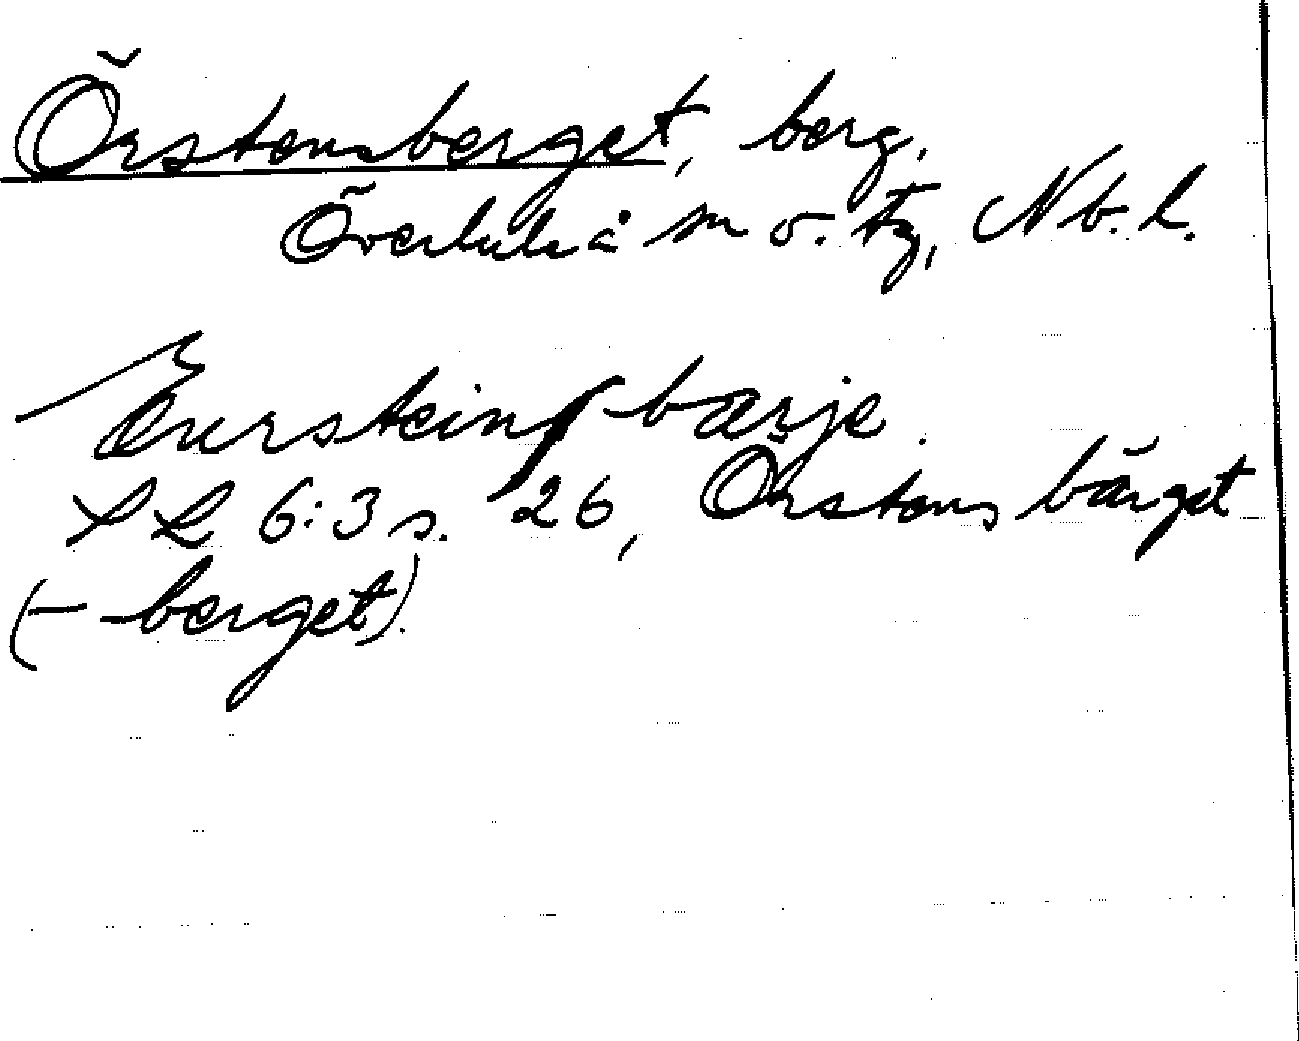 Örstensberget, berg,
Överluleå sn o. tg, Nb. l.
Œursteins-bærje.
SL 6:3 s. 26, Örstens bärget
(- -berget).